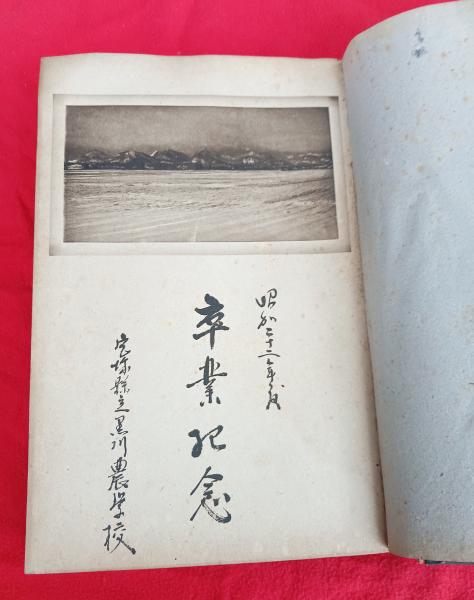 昭和二十二年三月
卒業記念
宮城縣立黒川農學校